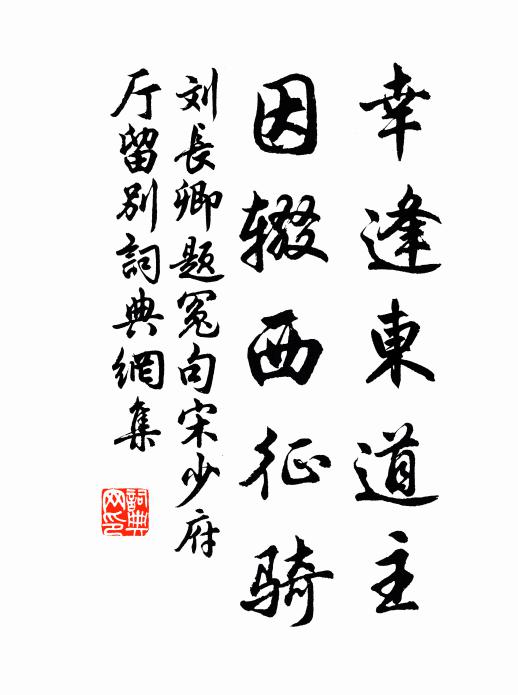 幸逢東道主
因辍西征骑
刘長卿题冤句宋少府
厅留别詞典網集
詞典网印